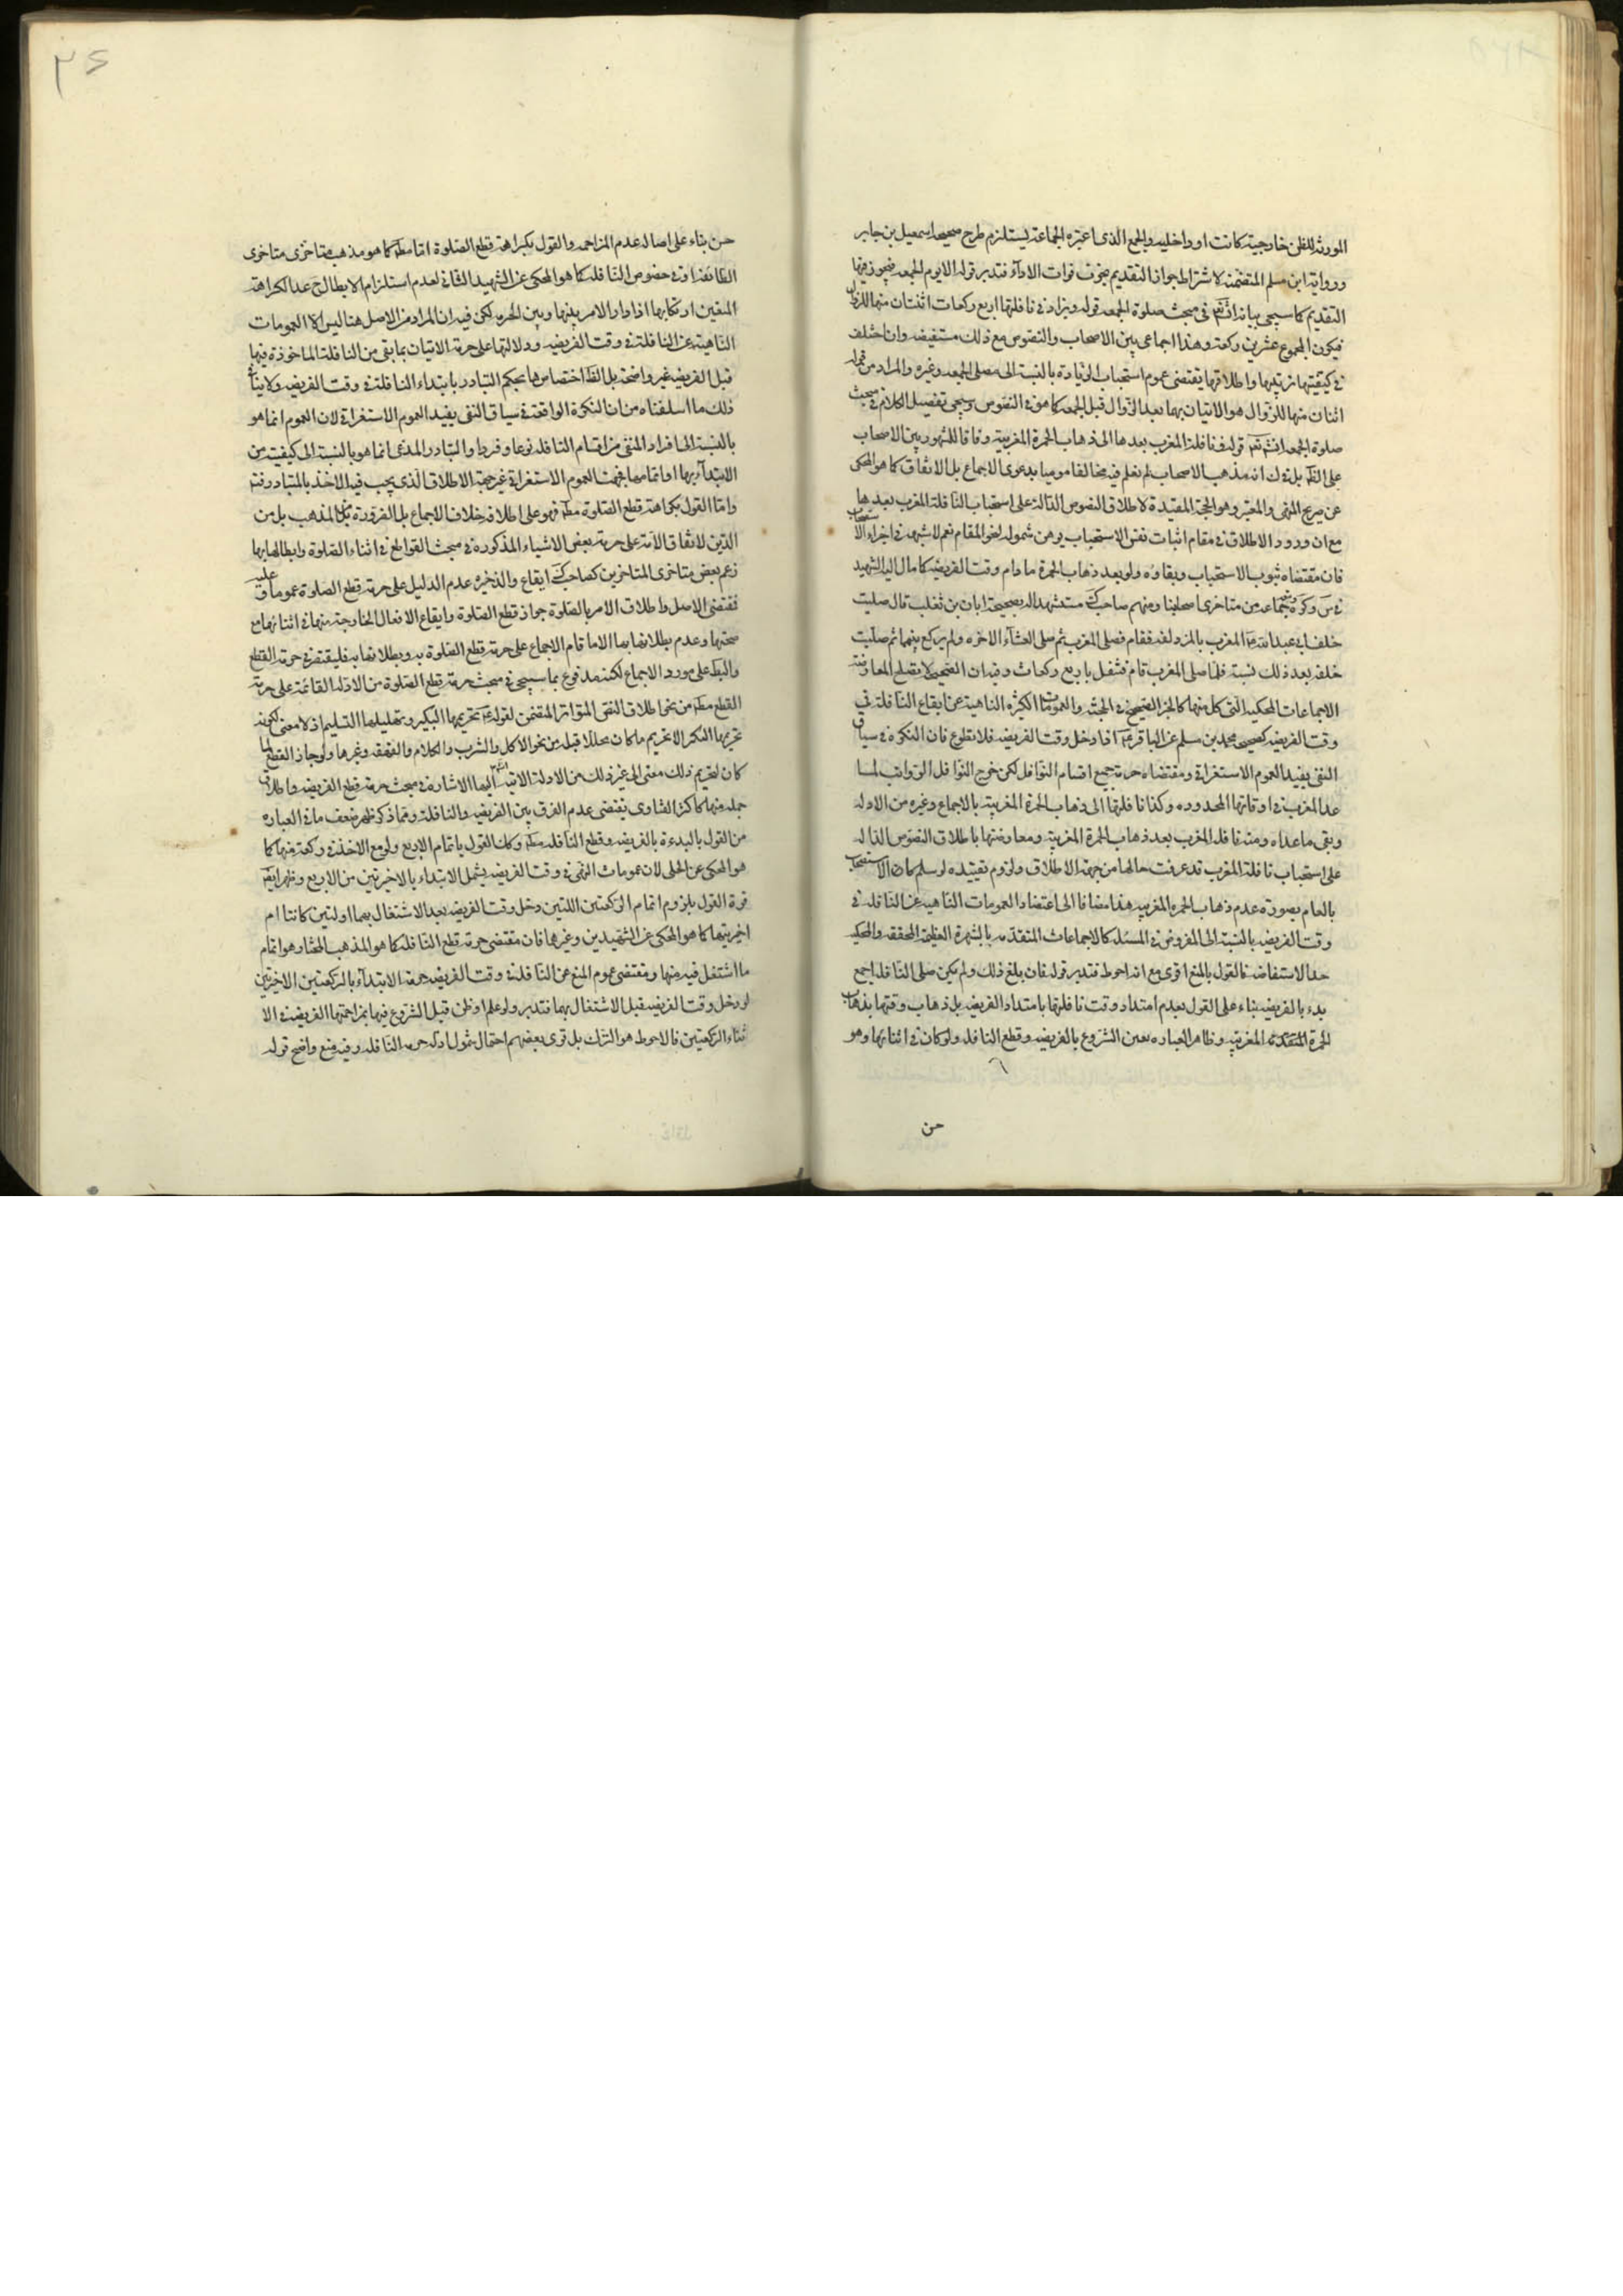 الموردة للظن خارجية كانت او داخلية والجمع الذى اعتبره الجماعة يستلزم طرح صحيحة اسمعيل بن جابر
ورواية ابن مسلم المتضمنة لاشتراط جواز التقديم بخوف فوات الاداء فتدبر قوله الا يوم الجمعة فيجوز فيها
التقديم كما سيجئ بيانه انشائته فى مبحث صلوة الجمعة قوله ويزاد فى نافلتها اربع ركعات اثنتان منها للزوال
فيكون المجموع عشرين ركعة وهذا اجماعى بين الاصحاب والنصوص مع ذلك مستفيضة وان اختلف
فى كيفيتها ترتيبها واطلاقها يقتضى عموم استحباب الزيادة بالنسبة الى مصلى الجمعة وغيره والمراد من قوله
اثنتان منها للزوال هو الاتيان بهما بعد الزوال قبل الجمعة كما هو فى النصوص وسيجئ تفصيل الكلام فى مبحث
صلوة الجمعة انشئتم قوله فنافلة المغرب بعدها الى ذهاب الحمرة المغربية وفاقا للمشهور بين الاصحاب
على الظ بل فى ك انه مذهب الاصحاب لم نعلم فيه مخالفا موميا بدعوى الاجماع بل الاتفاق كما هو المحكى
عن صريح المنتهى والمعتبر وهو الحجة المقيدة لاطلاق النصوص الدالة على استحباب النافلة المغرب بعدها
مع ان ورود الاطلاق فى مقام اثبات نفس الاستحباب يوهن شموله لنحو المقام نعم لا شبهة فى اجراء الاستصحاب
فان مقتضاه ثبوب الاستحباب وبقاوه ولو بعد ذهاب الحمرة ما دام وقت الفريضة كما مال اليه الشهيد
فى س وكره وتبعه جماعة من متاخرى اصحابنا ومنهم صاحب ك مستشهدا له بصحيحة ابان بن تغلب قال صليت
خلف ابى عبد الله ع المغرب بالمزدلفة فقام فصلى المغرب ثم صلى العشاء الاخره ولم يركع بينهما ثم صليت
خلفه بعد ذلك بسنة فلما صلى المغرب قام فتنفل باربع ركعات وفيه ان الصحيحة لا يصلح المعاوضة
الاجماعات المحكية التى كل منها كالخبر الصحيح فى الحجية والعمومات الكثيره الناهية عن ايقاع النافلة فى
وقت الفريضة كصحيحة محمد بن مسلم عن الباقر ع اذا دخل وقت الفريضة فلا تطوع فان النكره فى سياق
النفى يفيد العموم الاستغراقى ومقتضاه حرمة جميع اقسام النوافل لكن خرج النوافل الرواتب لما
عدا المغرب فى اوقاتها المحدوده وكذا نافلتها الى ذهاب الحمرة المغربية بالاجماع وغيره من الادله
وبقى ما عداه ومنه نافلة المغرب بعد ذهاب الحمرة المغربية ومعاوضتها باطلاق النصوص الداله
على استحباب نافلة المغرب قد عرفت حالها من جهة الاطلاق ولزوم تقييده لو سلم كما ان الاستصحاب
بالعام بصورة عدم ذهاب الحمره المغربية هذا مضافا الى اعتضاد العمومات الناهية عن النافله فى
وقت الفريضة بالنسبة الى المفروض فى المسئلة كالاجماعات المتقدمة بالشهرة العظيمة المحققة والمحكية
حد الاستفاضة فالقول بالمنع اقوى مع انه احوط فتدبر قوله فان بلغ ذلك ولم يكن صلى النافلة اجمع
بدء بالفريضة بناء على القول بعدم امتداد وقت نافلتها بامتداد الفريضة بل ذهاب وقتها بذهاب
الحمرة المتقدمة المغربية وظاهر العباره تعين الشروع بالفريضة وقطع النافلة ولو كان فى اثنائها وهو
حسن
٣٤
حسن بناء على اصالة عدم المزاحمة والقول بكراهة قطع الصلوة اما مط كما هو مذهب متاخرى متاخرى
الطائفة او فى خصوص النافلة كما هو المحكى عن الشهيد الثانى لعدم استلزام الابطال ح عدا الكراهة
المتعين ارتكابها اذا دار الامر بينها وبين الحرمة لكن فيه ان المراد من الاصل هنا ليس الا العمومات
الناهية عن النافلة فى وقت الفريضة ودلالتها على حرمة الاتيان بما بقى من النافلة الماخوذة فيها
قبل الفريضة غير واضحة بل الظ اختصاصها بحكم التبادر بابتداء النافلة فى وقت الفريضة ولا ينافى
ذلك ما اسلفناه من ان النكرة الواقعة فى سياق النفى يفيد العموم الاستغراقى لان العموم انما هو
بالنسبة الى افراد المنفى من اقسام النافلة نوعا وفردا والتبادر المدعى انما هو بالنسبة الى كيفيته من
الابتداء بها او اتمامها فجهت العموم الاستغراقى غير جهة الاطلاق الذى يجب فيه الاخذ بالمتبادر منه
واما القول بكراهة قطع الصلوة مط فهو على اطلاقه خلاف الاجماع بل الضرورة من المذهب بل من
الدين لاتفاق الامة على حرمة بعض الاشياء المذكوره فى مبحث القواطع فى اثناء الصلوة وابطالها بها
زعم بعض متاخرى المتاخرين كصاحب ك ايقاع والذخيره عدم الدليل على حرمة قطع الصلوة عموما وعليه
فمقتضى الاصل واطلاق الامر بالصلوة جواز قطع الصلوة وايقاع الافعال الخارجة منها فى اثنائها مع
صحتها وعدم بطلانها بها الا ما قام الاجماع على حرمة قطع الصلوة به وبطلانها به فليقتصر فى حرمة القطع
والبط على مورد الاجماع لكنه مدفوع بما سيجئ فى مبحث حرمة قطع الصلوة من الادلة القائمة على حرمة
القطع مط من نحو اطلاق النص المتواتر المتضمن لقوله ع تحريمها التكبير وتحليلها التسليم اذ لا معنى لكون
تحريمها التكبر الا تحريم ما كان محللا قبله من نحو الاكل والشرب والكلام والقهقهة وغيرها ولو جاز القطع لما
كان لتحريم ذلك معنى الى غير ذلك من الادلة الاتية اليها الاشارة فى مبحث حرمة قطع الفريضة واطلاق
جمله منها كاكثر الفتاوى يقتضى عدم الفرق بين الفريضة والنافلة ومما ذكر ظهر ضعف ما فى العباره
من القول بالبدءة بالفريضة وقطع النافلة مط وكك القول باتمام الاربع ولو مع الاخذ فى ركعة منها كما
هو المحكى عن الحلى لان عمومات النهى فى وقت الفريضة يشمل الابتداء بالاخيرتين من الاربع وظهر ايض
قوة القول بلزوم اتمام الركعتين اللتين دخل وقت الفريضة بعد الاشتغال بهما اولتين كانتا ام
اخيرتيها كما هو المحكى عن الشهيدين وغيرها فان مقتضى حرمة قطع النافلة كما هو المذهب المختار هو اتمام
ما اشتغل فيه منها ومقتضى عموم المنع عن النافلة فى وقت الفريضة حرمة الابتداء بالركعتين الاخيرتين
لو دخل وقت الفريضة قبل الاشتغال بهما فتدبر ولو علم او ظن قبل الشروع فيها بمزاحمتها الفريضة فى الا
ثناء الركعتين فالاحوط هو الترك بل قوى بعضهم احتمال شمول ادلة حرمة النافلة وفيه منع واضح قوله